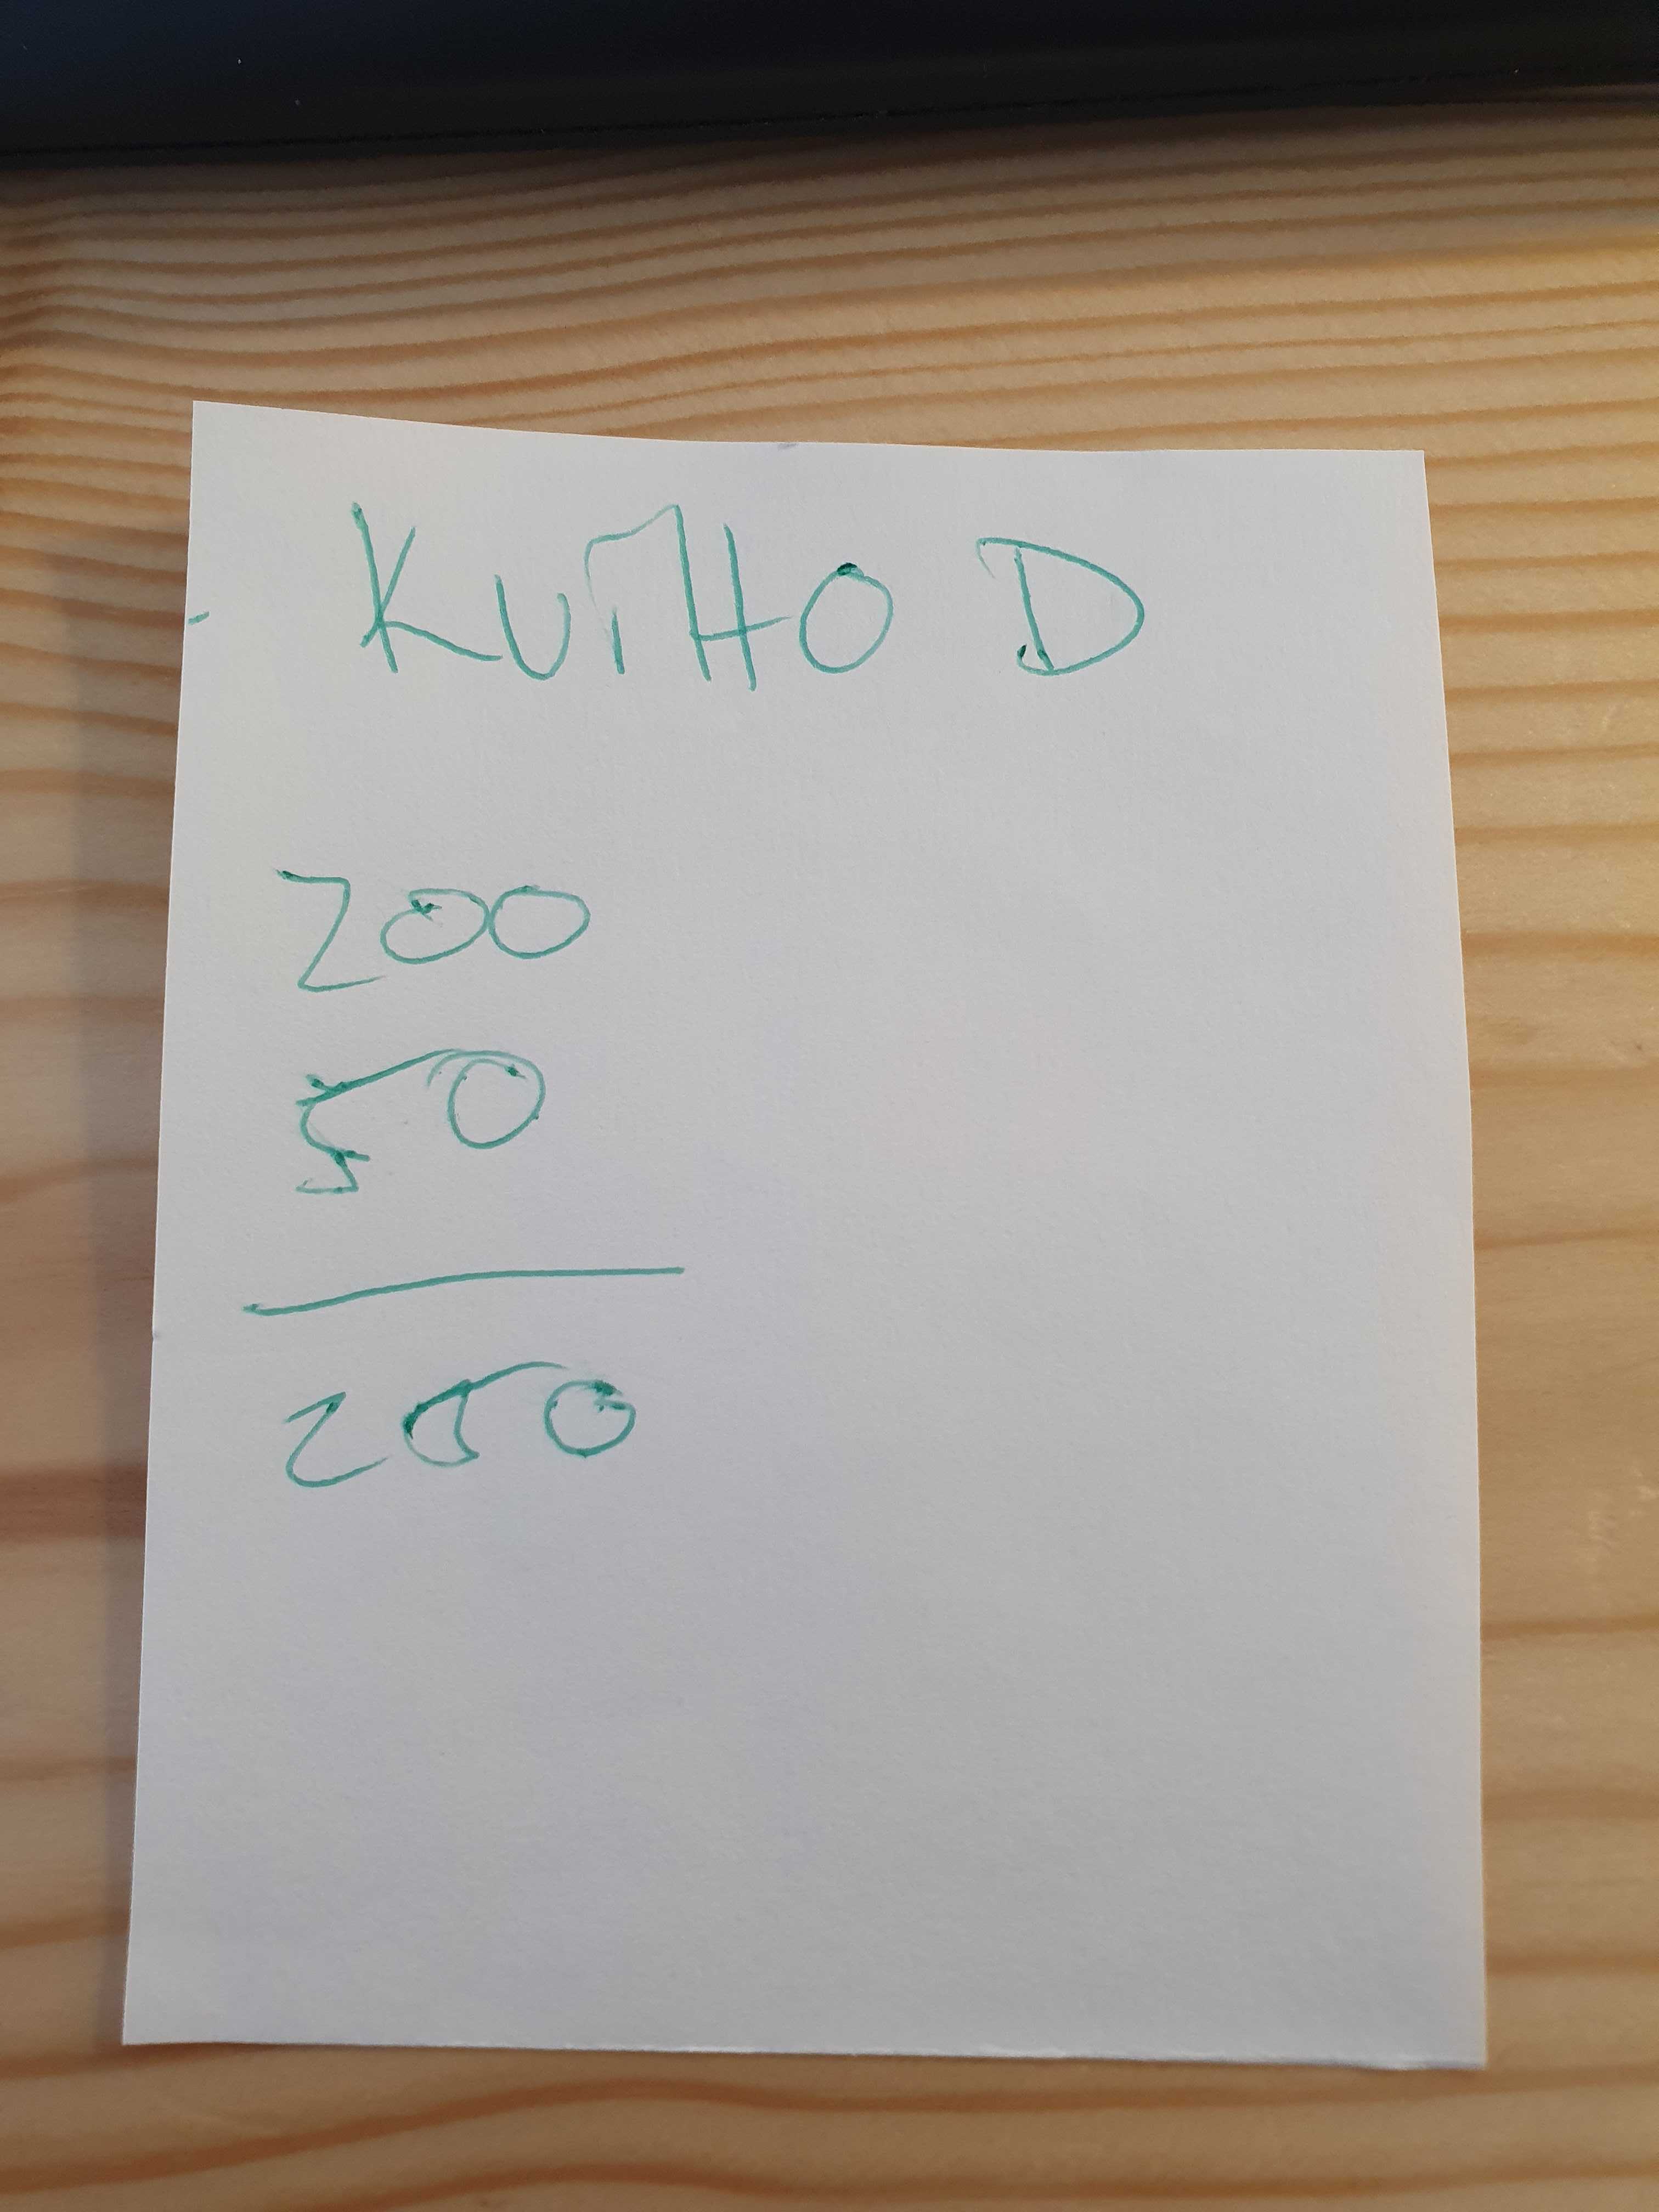 KuTHO D
200
50
250